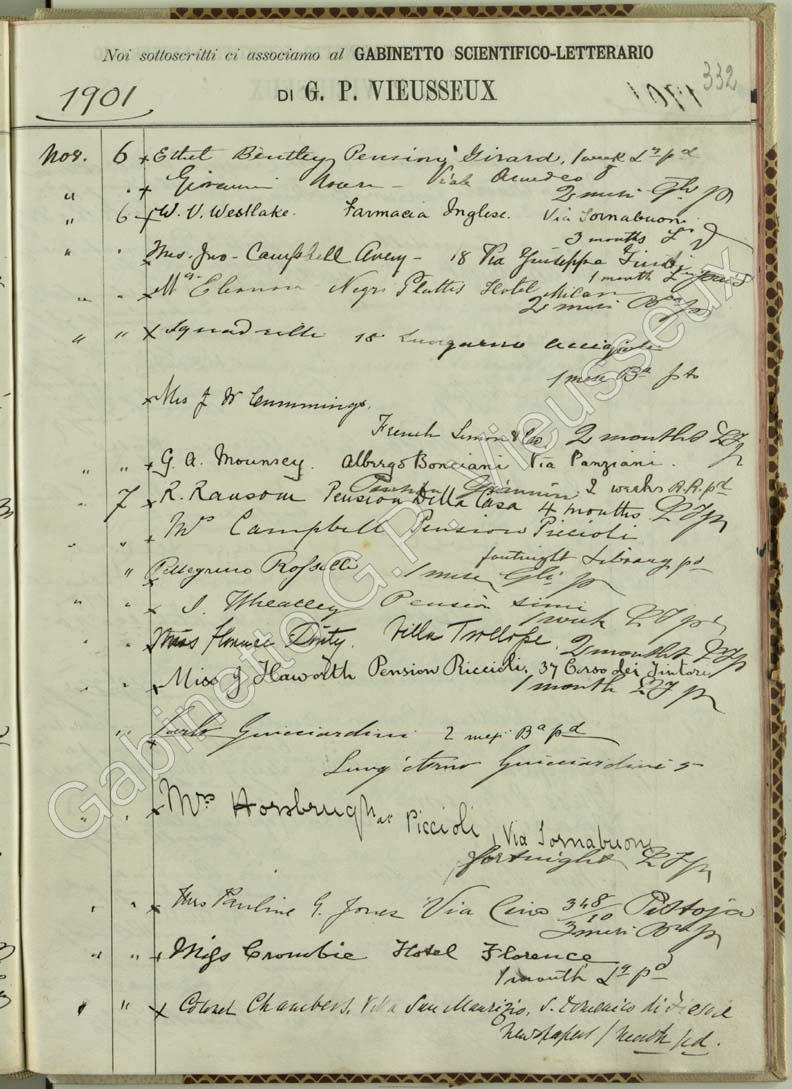 Noi sottoscritti ci associamo al GABINETTO SCIENTIFICO-LETTERARIO
DI G. P. VIEUSSEUX
1901
332
Nov. 6 Ethel Bentley Pension Girard, 1 week pd
" Giovanni Viale Amedeo
2 mesi
" 6 W. V. Westlake. Farmacia Inglese. Via Tornabuoni
3 months
Mrs. Jno. Campbell Avery - 18 Via Giuseppe Giusti
1 month
" " Eleonora Negri Hotel Milan
2 mesi
" " 18 Lungarno Acciajoli
1 mese Ba
Mrs J W Cummings.
French Lemon & Co, 2 months
" " G. A. Mounsey. Albergo Bonciani Via Panzani.
2 weeks R.R. pd
7 R. Ransom Pension Villa Casa 4 months
" " Mrs Campbell Pension Piccioli
fortnight Library, pd
" Pellegrino Rosselli 1 mese
" " J. Wheatley Pension Simi
1 week
" " Miss Florence Douty. Villa Trollope, 2 months
" " Miss J Haworth Pension Riccioli, 37 Corso dei Tintori
1 month
" Carlo Guicciardini 2 mesi Ba pd
Lung'Arno Guicciardini 5
" " Mrs Horsbrugh at Piccioli, Via Tornabuoni
fortnight
" " Mrs Pauline G. Jones Via Cino 348/10 Pistoja
3 mesi
" " Miss Crombie Hotel Florence
1 month pd
" " Colonel Chambers, Villa San Maurizio, S. Domenico di Fiesole
Newspapers 1 month pd.
Gabinetto G.P. Vieusseux